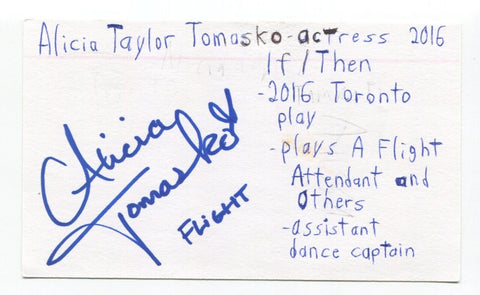 Alicia Taylor Tomasko-actress 2016
If/Then
-2016 Toronto
play
-plays A Flight
Attendant and
Others
-assistant
dance captain
Alicia
Tomasko
FLIGHT